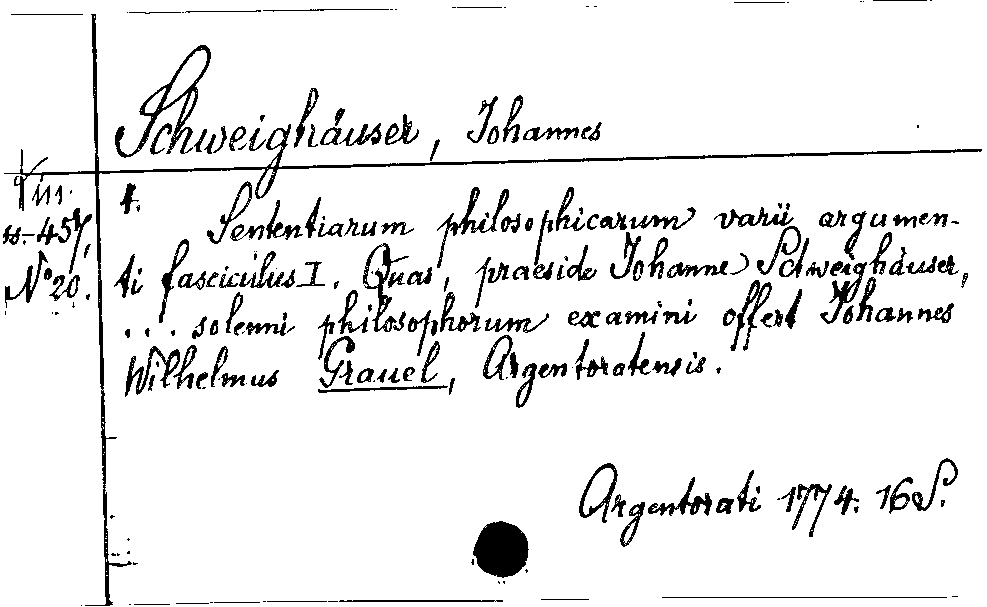 Schweighäuser, Johannes
4.
Sententiarum philosophicarum varii argumen-
ti fasciculus I. Quas, praeside Johanne Schweighäuser,
... solemni philosophorum examini offert Johannes
Wilhelmus Grauel, Argentoratensis.
Argentorati 1774. 16 S.
-457,
No 20.